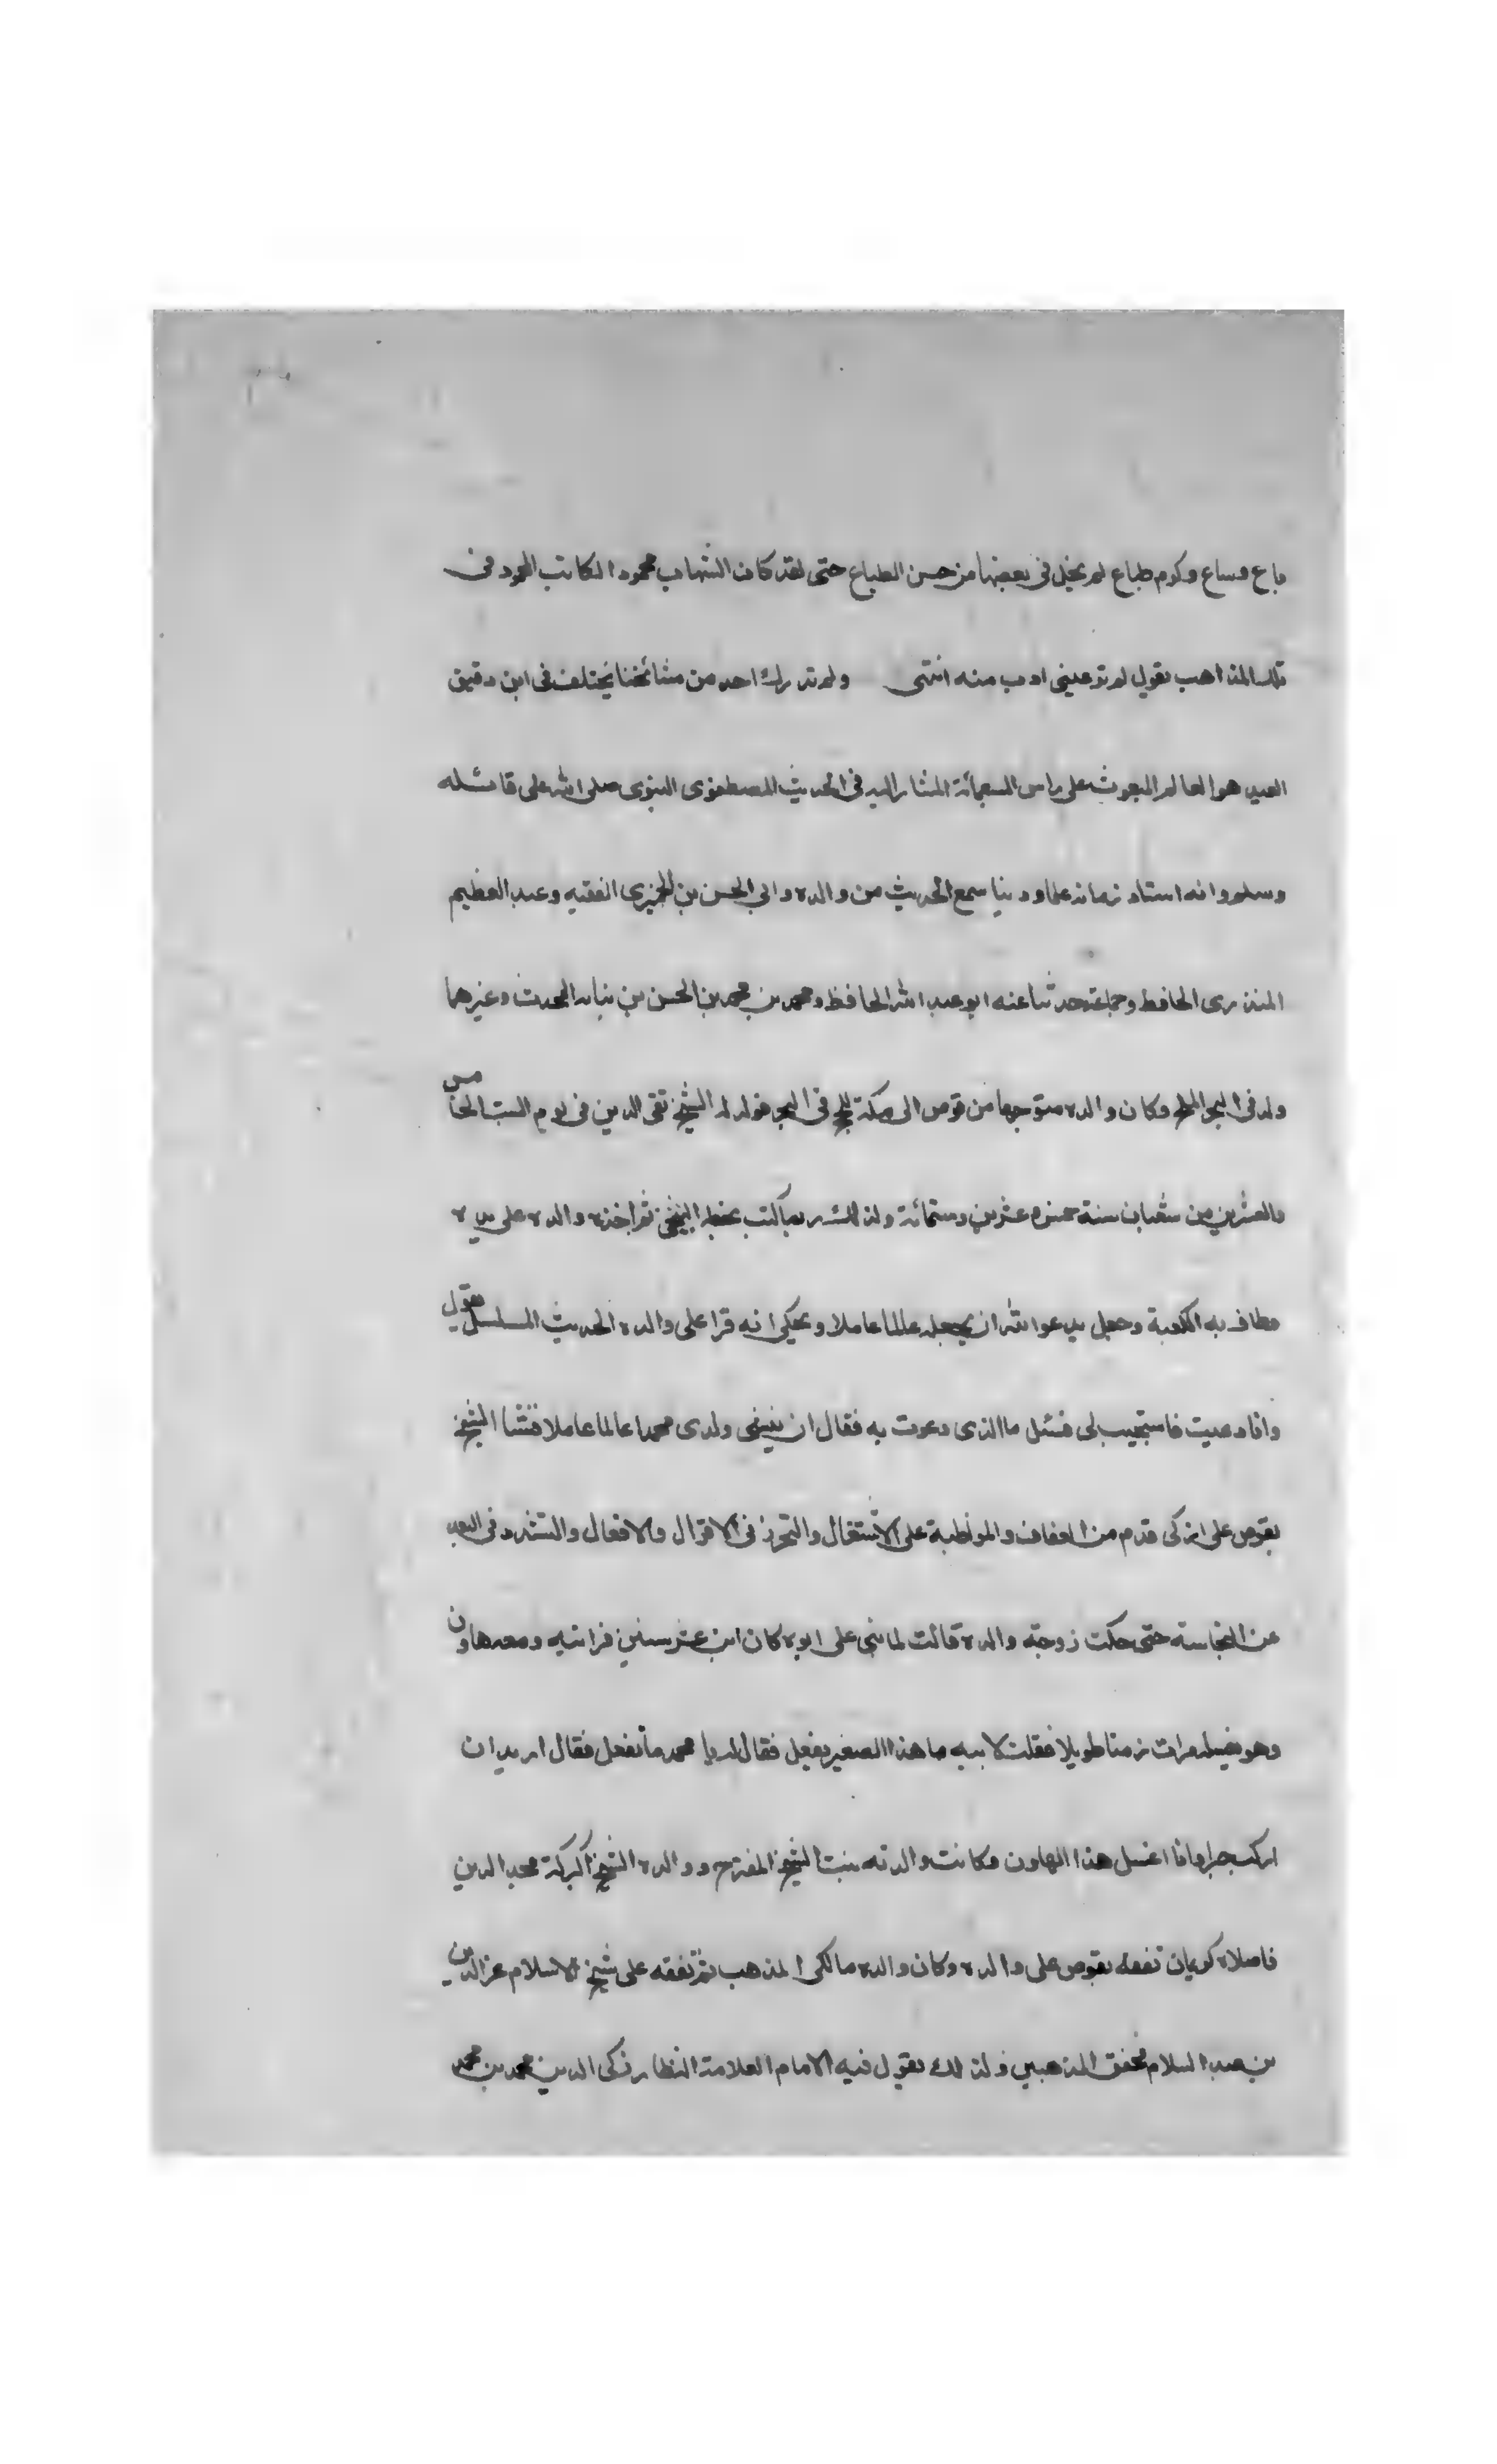 باع وساع وكرم طباع لم يخل في بعضها من حسن الطباع حتى لقد كان الشهاب محمود الكاتب المحمود في
تلك المذاهب يقول لم تر عيني ادب منه انتهى ولم ندرك احد من مشائخنا يختلف في ابن دقيق
العيد هو العالم المبعوث على راس السبعمائة المشار اليه في الحديث المصطفوى النبوى صلى الله على قائله
وسلم وانه استاد زمانه علما ودينا سمع الحديث من والده وابي الحسن بن الجميزى الفقيه وعبد العظيم
المنذرى الحافظ وجماعة حدثنا عنه ابو عبد الله الحافظ ومحمد بن محمد بن الحسن بن نباته المحدث وغيرهما
ولد في البحر الملح وكان والده متوجها من قوص الى مكة للحج في البحر فولد له الشيخ تقى الدين في يوم السبت الخامس
والعشرين من شعبان سنة خمس وعشرين وستمائة ولذلك ربما كتب بخطه الثبجى ثم اخذه والده على يده
وطاف به الكعبة وجعل يدعو الله ان يجعله عالما عاملا ويحكى انه قرا على والده الحديث المسلسل يقول
وانا دعيت فاستجيب لى فسئل ما الذى دعوت به فقال ان ينشئ ولدى محمدا عالما عاملا فنشا الشيخ
بقوص على ازكى قدم من العفاف والمواظبة على الاشتغال والتحرز في الاقوال والافعال والتشدد في البعد
عن النجاسة حتى حكت زوجة والده قالت لما بنى على ابوه كان ابن عشر سنين فرايته ومعه هاون
وهو يغسله مرات زمنا طويلا فقلت لابيه ما هذا الصغير يفعل فقال له يا محمد ما تفعل فقال اريد ان
اركب حبرا وانا اغسل هذا الهاون وكانت والدته بنت الشيخ المقترح ووالده الشيخ البركة مجد الدين
فاصلاه كريمان تفقه بقوص على والده وكان والده مالكى المذهب ثم تفقه على شيخ الاسلام عز الدين
بن عبد السلام فحقق المذهبين ولذلك يقول فيه الامام العلامة النظار زكى الدين محمد بن محمد